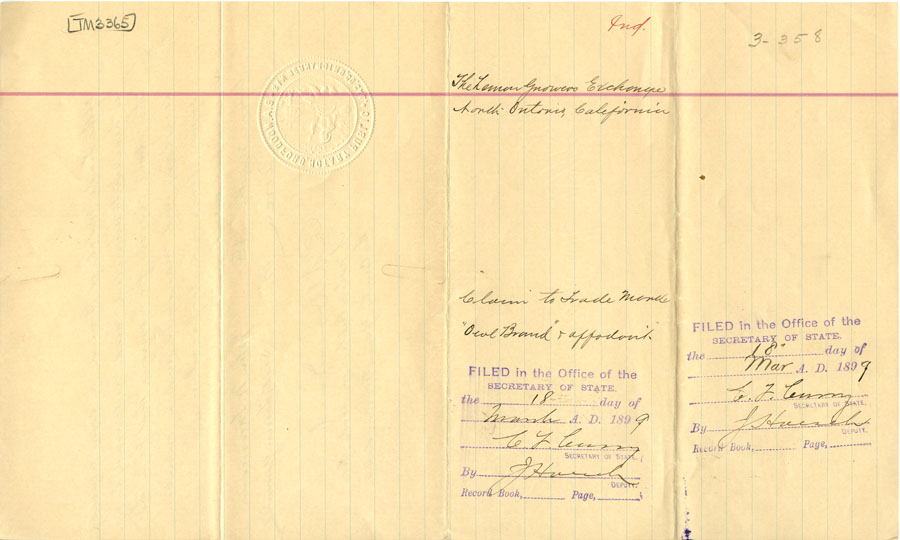 TM3365
Ind.
3-358
The Lemon Growers Exchange
North Ontario, California
Claim to Trade Mark
"Owl Brand" & affidavit
FILED in the Office of the
SECRETARY OF STATE.
the 18 day of
March A. D. 1899
C F Curry
SECRETARY OF STATE.
By J Hoesch
DEPUTY.
Record Book, Page,
FILED in the Office of the
SECRETARY OF STATE.
the 18" day of
Mar A. D. 1899
C. F. Curry
SECRETARY OF STATE.
By J Hoesch
DEPUTY.
Record Book, Page,